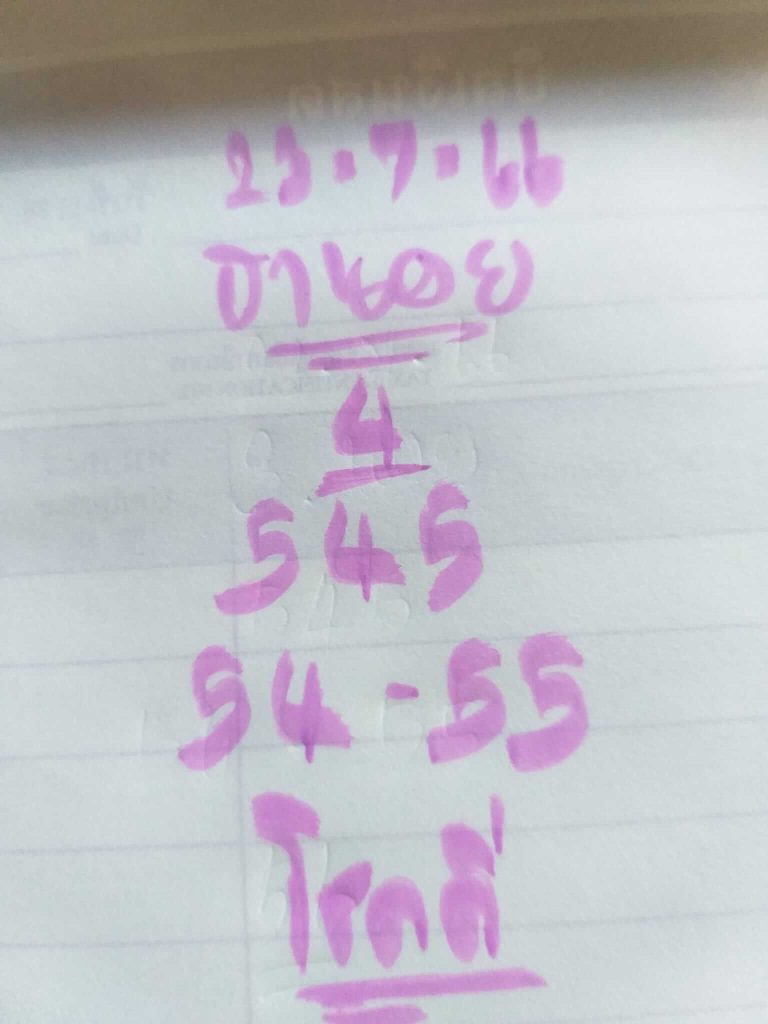 23.7.66
ฮานอย
4
545
54-55
โชคดี